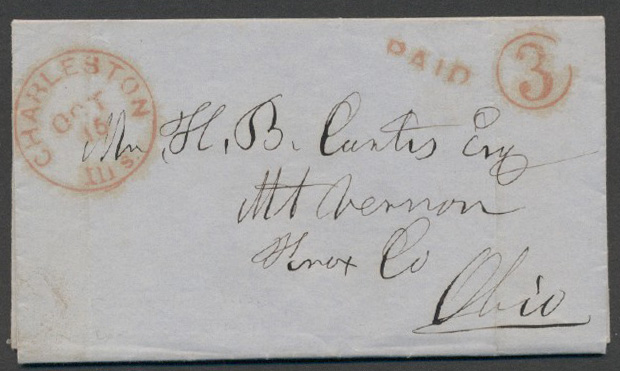 CHARLESTON
OCT
15
Ills.
PAID
3
Mr. H. B. Curtis Esq
Mt Vernon
Knox Co
Ohio